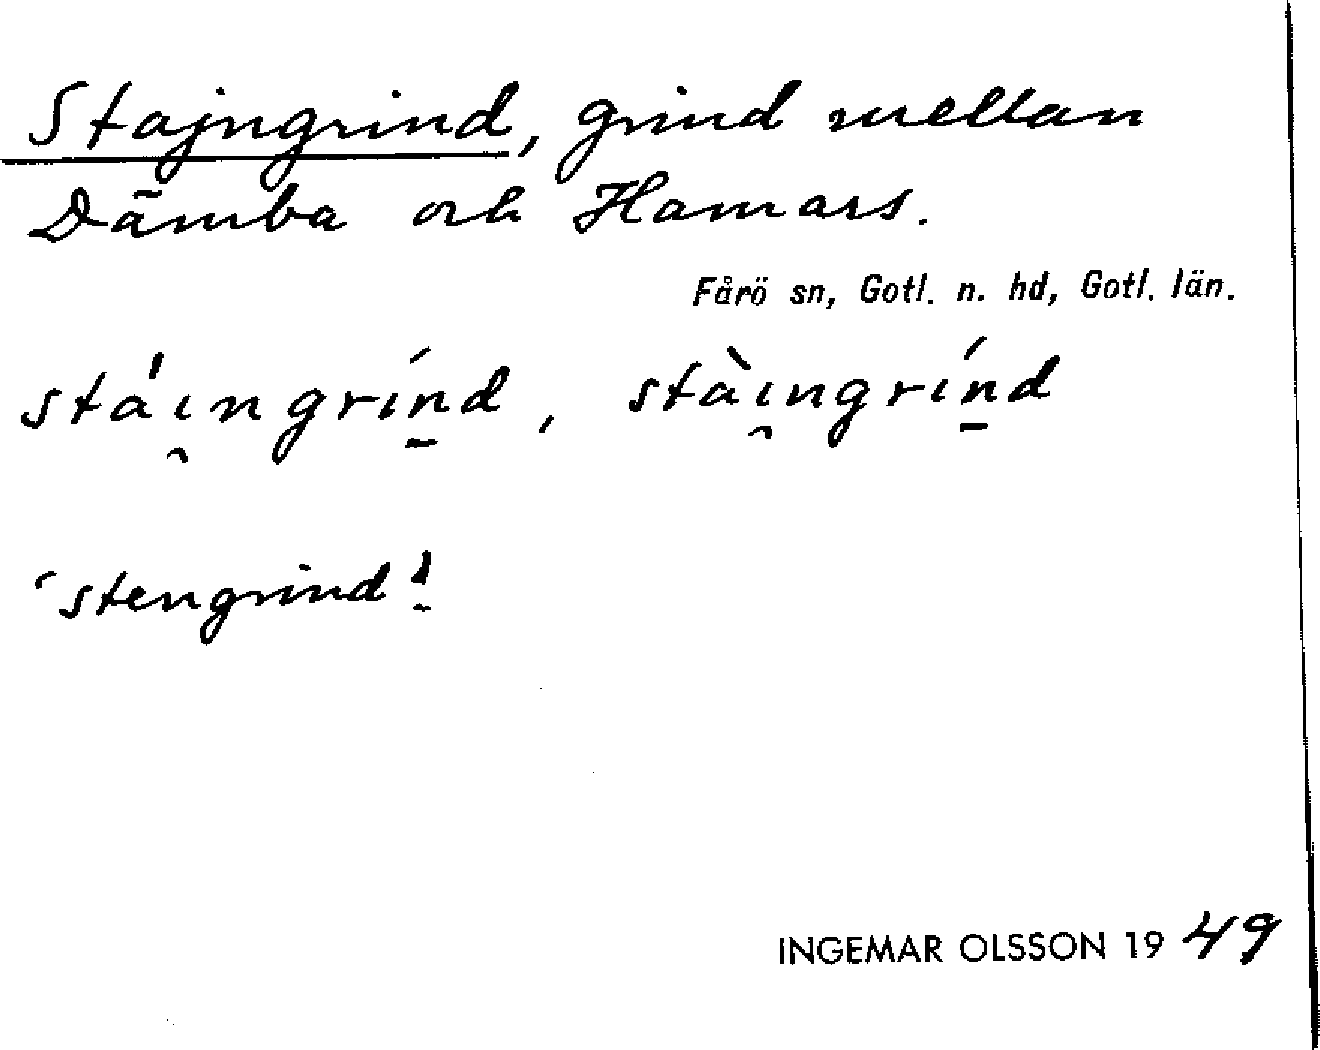 Stajngrind, grind mellan
Dämba och Hamars.
Fårö sn, Gotl. n. hd, Gotl. län.
stá'ı̯ngrín̠d, stàı̯ngrín̠d
'stengrind'.
INGEMAR OLSSON 1949